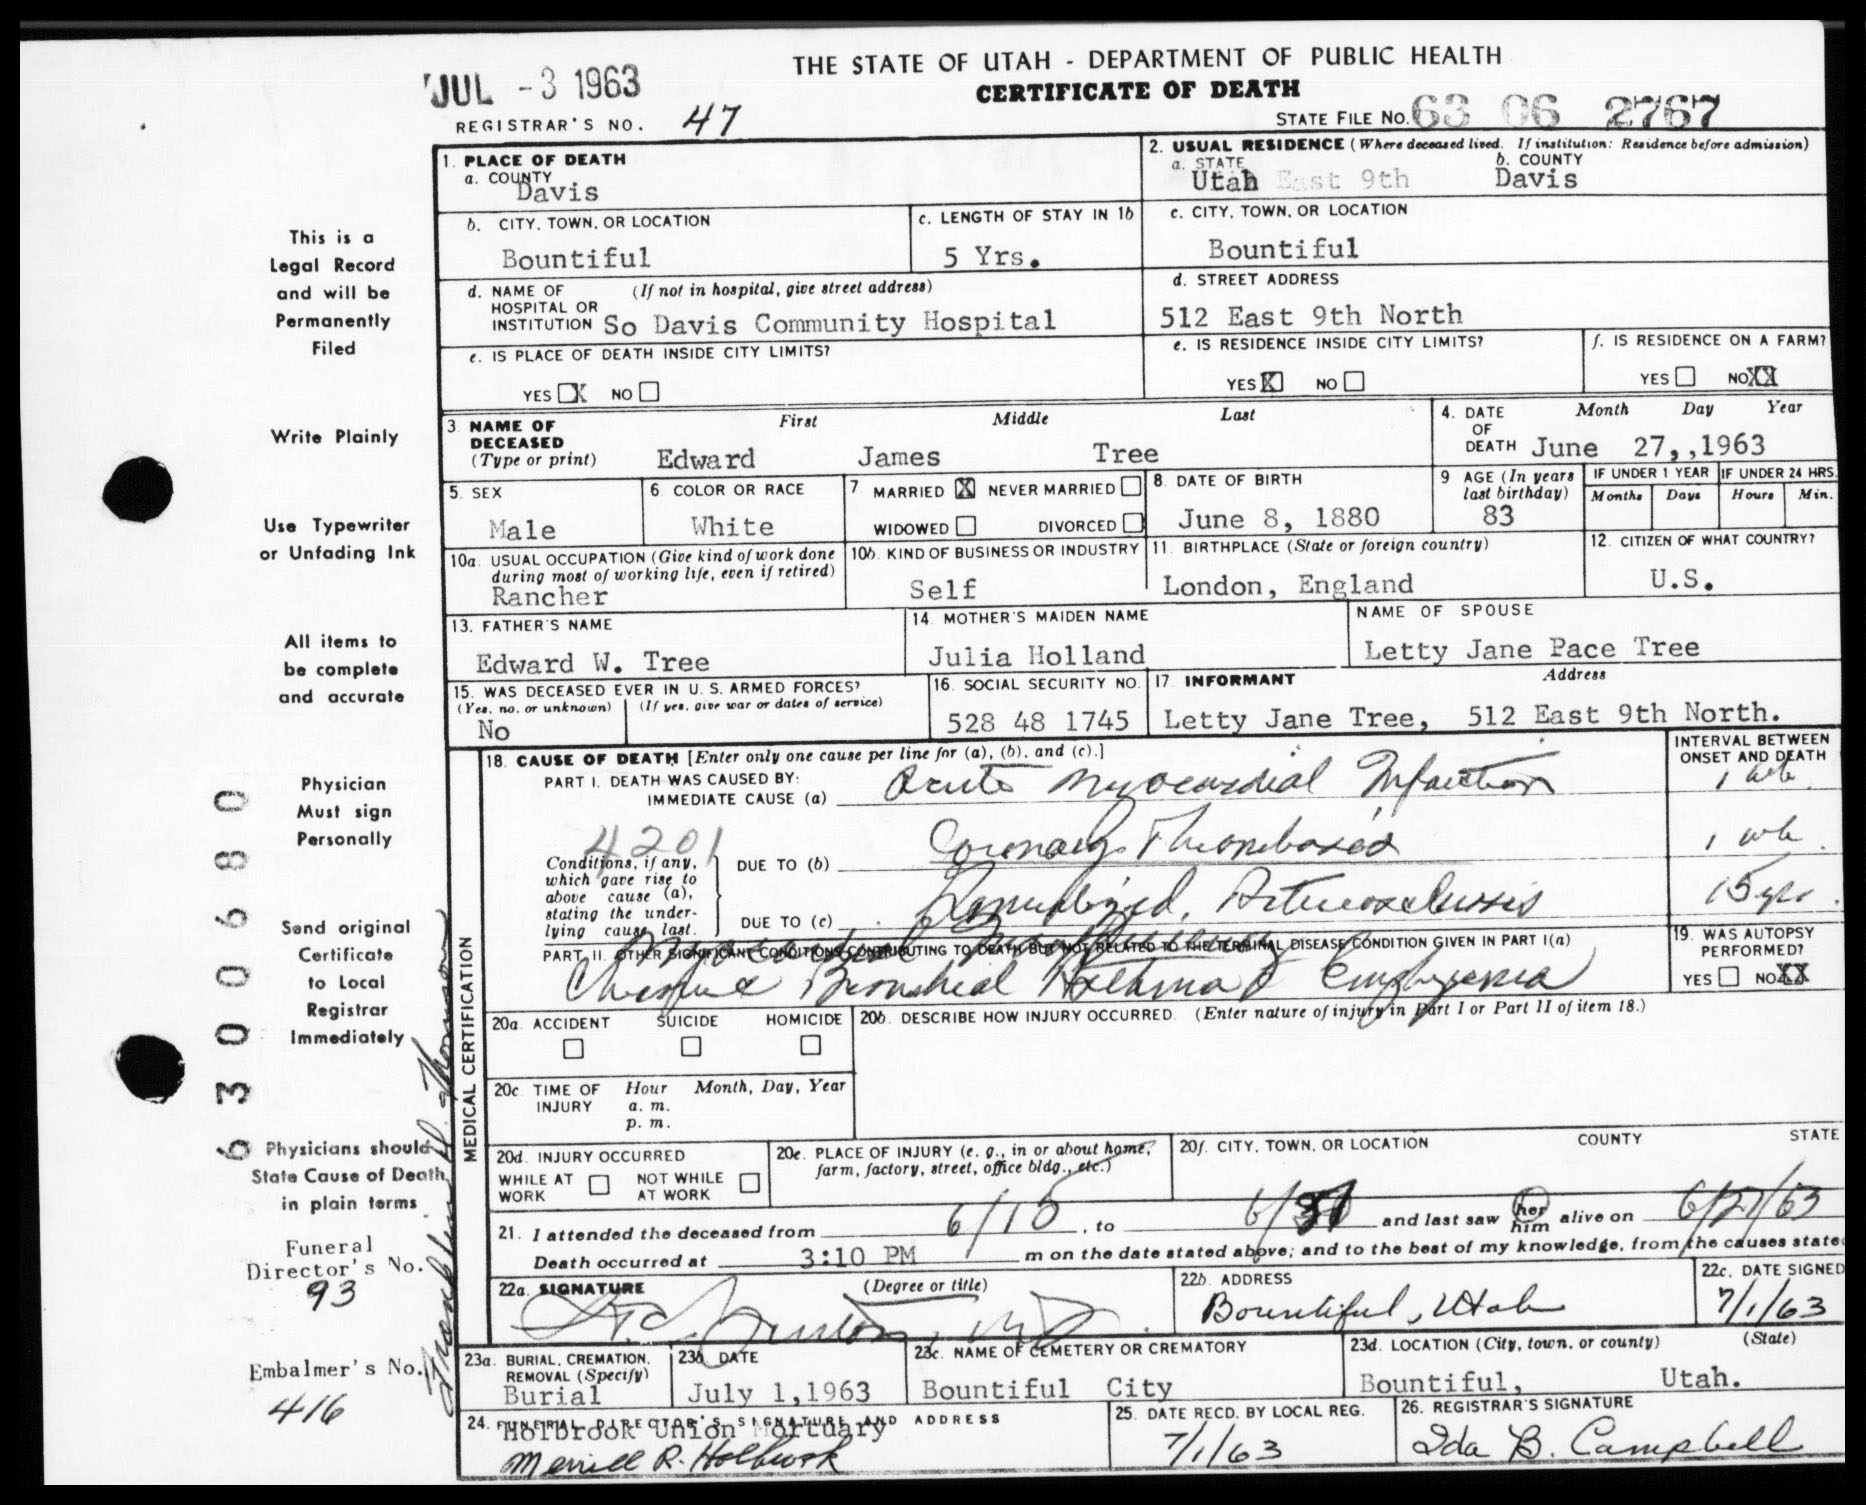 JUL - 3 1963
THE STATE OF UTAH - DEPARTMENT OF PUBLIC HEALTH
CERTIFICATE OF DEATH
REGISTRAR'S NO. 47
STATE FILE NO. 63 06 2767
This is a
Legal Record
and will be
Permanently
Filed
Write Plainly
Use Typewriter
or Unfading Ink
All items to
be complete
and accurate
Physician
Must sign
Personally
Send original
Certificate
to Local
Registrar
Immediately
Physicians should
State Cause of Death
in plain terms
Funeral
Director's No.
93
Embalmer's No.
416
6300680
Franklin D. Thomson
1. PLACE OF DEATH
a. COUNTY
Davis
2. USUAL RESIDENCE (Where deceased lived. If institution: Residence before admission)
a. STATE b. COUNTY
Utah East 9th Davis
b. CITY, TOWN, OR LOCATION
Bountiful
c. LENGTH OF STAY IN 1b
5 Yrs.
c. CITY, TOWN, OR LOCATION
Bountiful
d. NAME OF (If not in hospital, give street address)
HOSPITAL OR
INSTITUTION So Davis Community Hospital
d. STREET ADDRESS
512 East 9th North
e. IS PLACE OF DEATH INSIDE CITY LIMITS?
YES X NO
e. IS RESIDENCE INSIDE CITY LIMITS?
YES X NO
f. IS RESIDENCE ON A FARM?
YES NO XX
3. NAME OF DECEASED (Type or print)
First Middle Last
Edward James Tree
4. DATE OF DEATH
Month Day Year
June 27,,1963
5. SEX
Male
6. COLOR OR RACE
White
7. MARRIED X NEVER MARRIED
WIDOWED DIVORCED
8. DATE OF BIRTH
June 8, 1880
9 AGE (In years last birthday)
83
IF UNDER 1 YEAR IF UNDER 24 HRS.
Months Days Hours Min.
10a. USUAL OCCUPATION (Give kind of work done
during most of working life, even if retired)
Rancher
10b. KIND OF BUSINESS OR INDUSTRY
Self
11. BIRTHPLACE (State or foreign country)
London, England
12. CITIZEN OF WHAT COUNTRY?
U.S.
13. FATHER'S NAME
Edward W. Tree
14. MOTHER'S MAIDEN NAME
Julia Holland
NAME OF SPOUSE
Letty Jane Pace Tree
15. WAS DECEASED EVER IN U. S. ARMED FORCES?
(Yes, no, or unknown) (If yes, give war or dates of service)
No
16. SOCIAL SECURITY NO.
528 48 1745
17. INFORMANT Address
Letty Jane Tree, 512 East 9th North.
MEDICAL CERTIFICATION
18. CAUSE OF DEATH [Enter only one cause per line for (a), (b), and (c).]
PART I. DEATH WAS CAUSED BY:
IMMEDIATE CAUSE (a) Acute Myocardial Infarction
INTERVAL BETWEEN
ONSET AND DEATH
1 wk.
4201
Conditions, if any,
which gave rise to
above cause (a),
stating the under-
lying cause last.
DUE TO (b) Coronary Thrombosis
1 wk.
DUE TO (c) Generalized Arteriosclerosis
15 yrs.
PART II. OTHER SIGNIFICANT CONDITIONS CONTRIBUTING TO DEATH BUT NOT RELATED TO THE TERMINAL DISEASE CONDITION GIVEN IN PART I(a)
Chronic Bronchial Asthma & Emphysema
19. WAS AUTOPSY
PERFORMED?
YES NO XX
20a. ACCIDENT SUICIDE HOMICIDE
20b. DESCRIBE HOW INJURY OCCURRED. (Enter nature of injury in Part I or Part II of item 18.)
20c. TIME OF INJURY Hour Month, Day, Year
a. m.
p. m.
20d. INJURY OCCURRED
WHILE AT WORK NOT WHILE AT WORK
20e. PLACE OF INJURY (e. g., in or about home,
farm, factory, street, office bldg., etc.)
20f. CITY, TOWN, OR LOCATION COUNTY STATE
21. I attended the deceased from 6/15, to 6/ and last saw her him alive on 6/27/63
Death occurred at 3:10 PM m on the date stated above; and to the best of my knowledge, from the causes state
22a. SIGNATURE (Degree or title)
M.D.
22b. ADDRESS
Bountiful, Utah
22c. DATE SIGNED
7/1/63
23a. BURIAL, CREMATION,
REMOVAL (Specify)
Burial
23b. DATE
July 1,1963
23c. NAME OF CEMETERY OR CREMATORY
Bountiful City
23d. LOCATION (City, town, or county) (State)
Bountiful, Utah.
24. FUNERAL DIRECTOR'S SIGNATURE AND ADDRESS
Holbrook Union Mortuary
Merrill R. Holbrook
25. DATE RECD. BY LOCAL REG.
7/1/63
26. REGISTRAR'S SIGNATURE
Ida B. Campbell